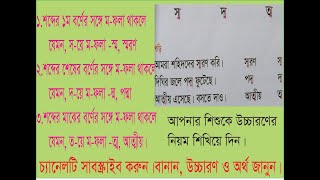 ১.শব্দের ১ম বর্ণের সঙ্গে ম-ফলা থাকলে
যেমন, স-য়ে ম-ফলা -স্ম, স্মরণ
২.শব্দের শেষের বর্ণের সঙ্গে ম-ফলা থাকলে
যেমন, দ-য়ে ম-ফলা -দ্ম, পদ্মা
৩.শব্দের মাঝের বর্ণের সঙ্গে ম-ফলা থাকলে
যেমন, ত-য়ে ম-ফলা -ত্ম, আত্মীয়।
স্ম দ্ম ত্ম
আমরা শহিদদের স্মরণ করি। স্মরণ স্ম
দিঘির জলে পদ্ম ফুটেছে। পদ্ম দ্ম
আত্মীয় এসেছে। বসতে দাও। আত্মীয় ত্ম
আপনার শিশুকে উচ্চারণের
নিয়ম শিখিয়ে দিন।
চ্যানেলটি সাবস্ক্রাইব করুন।বানান, উচ্চারণ ও অর্থ জানুন।